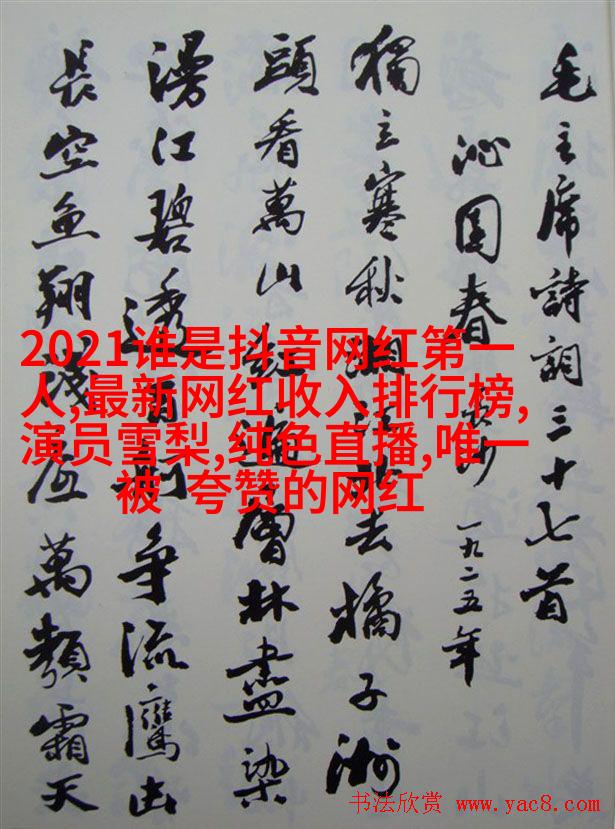 毛主席詩詞三十七首
沁园春 长沙 一九二五年
獨立寒秋湘江北去橘子洲
頭看萬山紅遍層林盡染
漫江碧透百舸争流鷹击
長空鱼翔淺底萬類霜天
2021谁是抖音网红第一
人,最新网红收入排行榜,
演员雪梨,纯色直播,唯一
被 夸赞的网红
书法欣赏 www.yac8.com